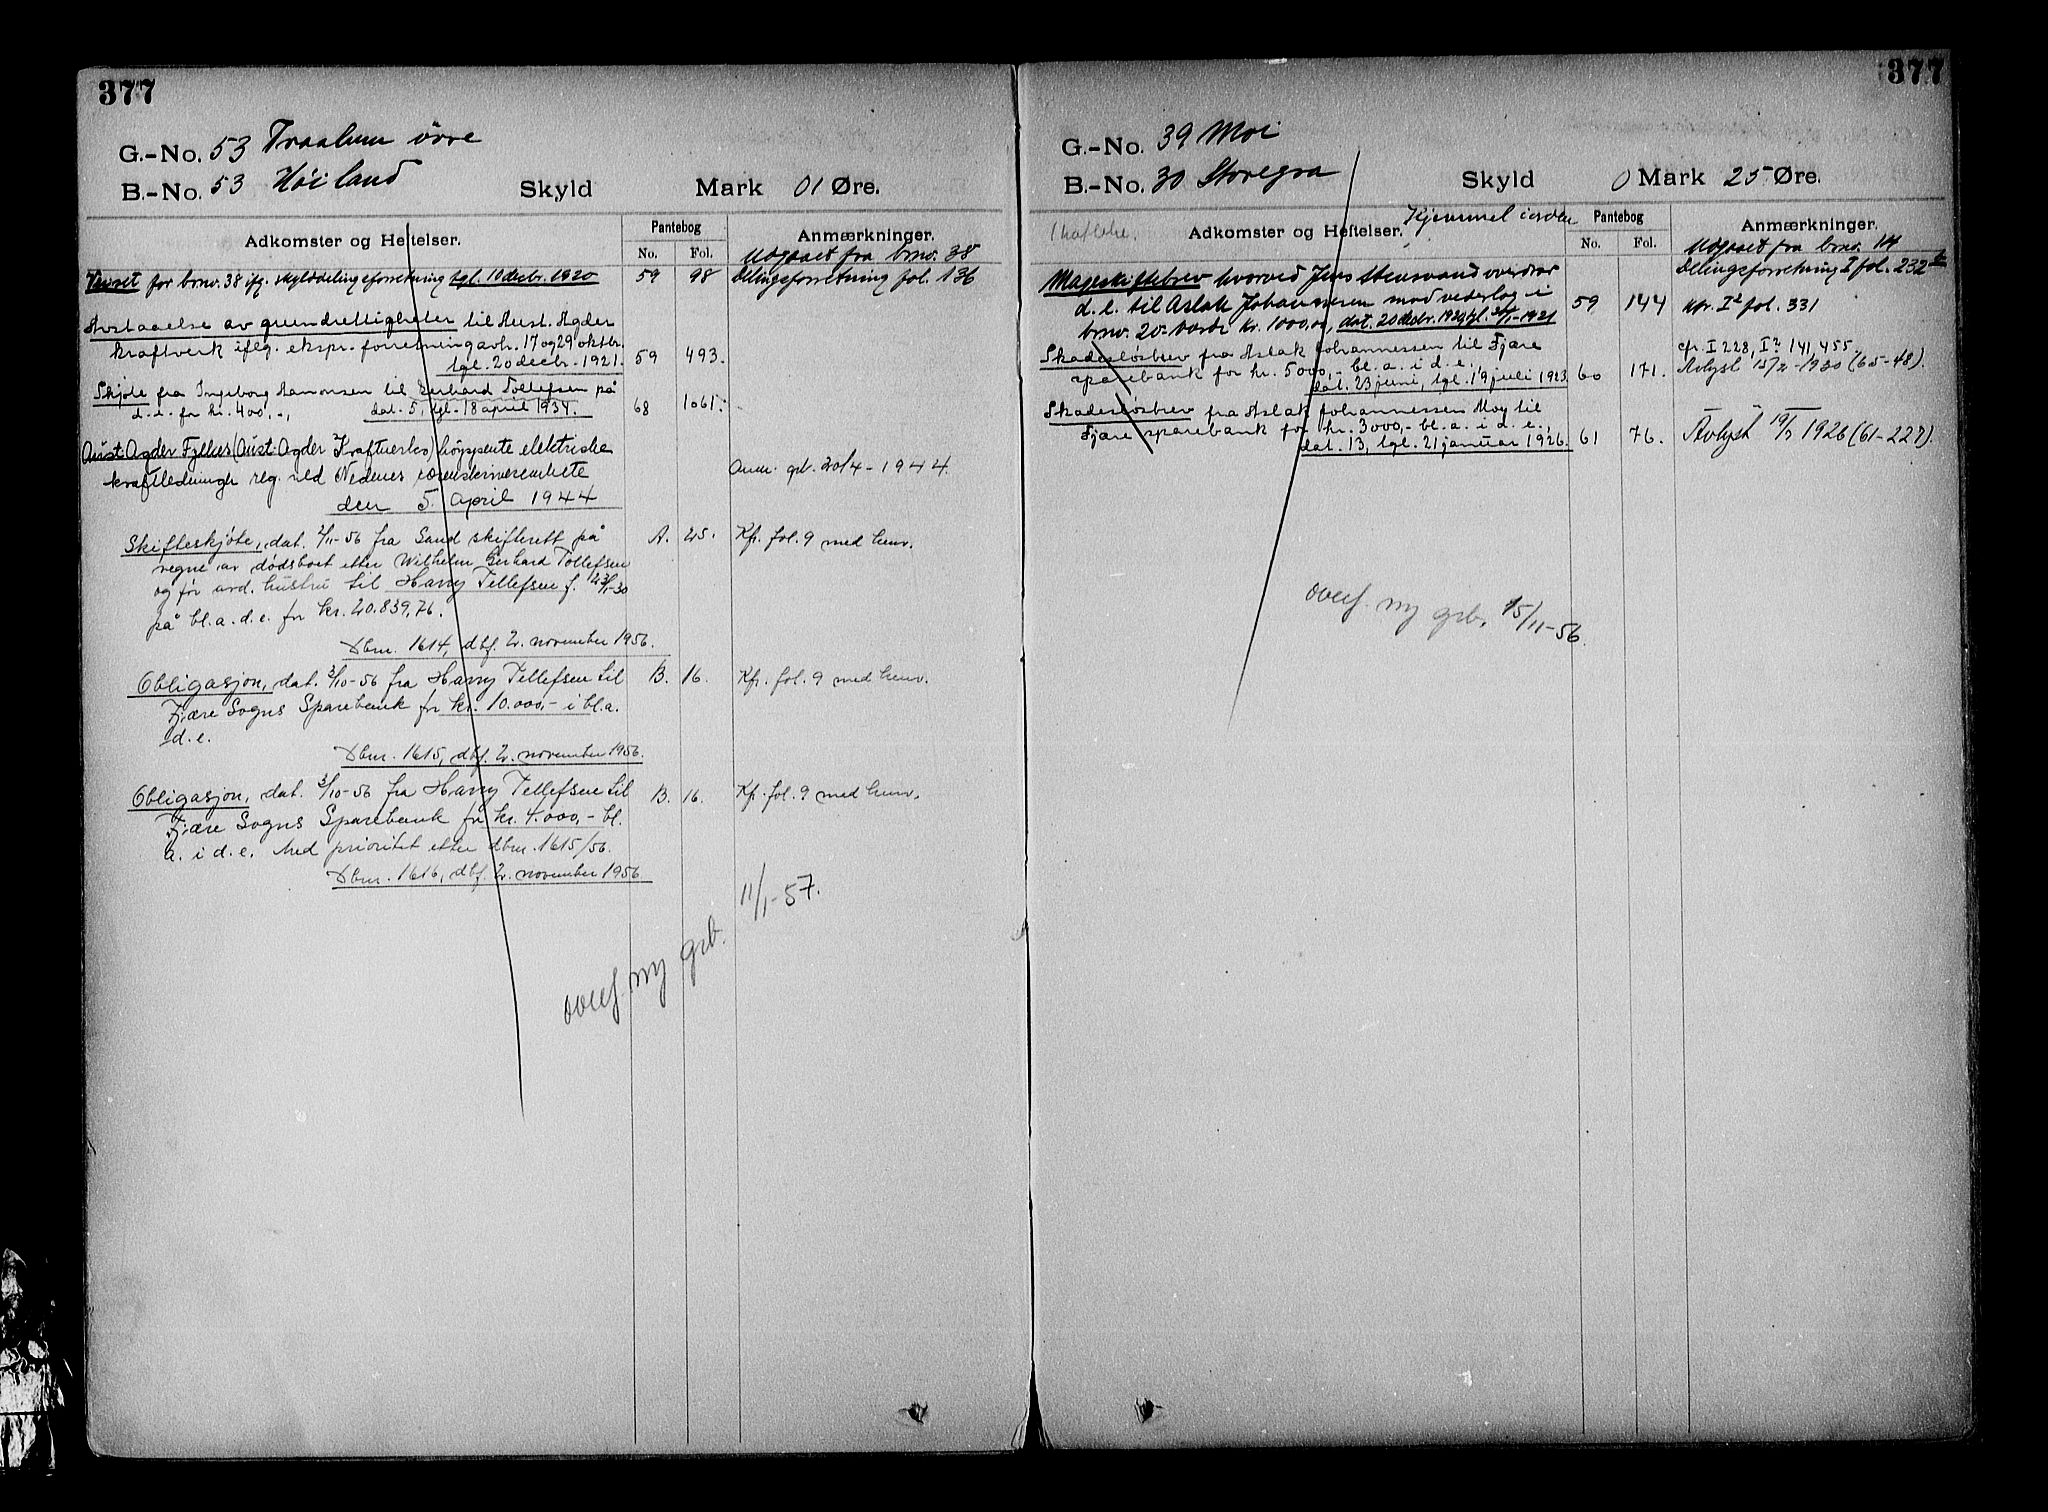 377
G.-No. 53 Traalum övre
B.-No. 53 Höiland Skyld Mark 01 Øre.
Adkomster og Heftelser. Pantebog Anmærkninger.
No. Fol. Utgaaet fra brno. 38
for brno. 38 ifg. skylddelingsforretning tgl. 10 decbr. 1920 59 98 Delingsforretning fol. 136
Avstaaelse av grundrettigheter til Aust-Agder
kraftverk iflg. ekspr. forretning avh. 17 og 29 oktbr.
tgl. 20 decbr. 1921. 59 493.
Skjöte fra Ingeborg Aamonsen til Gerhard Tollefsen på
d. e. for kr. 400,-, dat. 5, tgl. 18 april 1934. 68 1061.
Aust-Agder Fylkes (Aust-Agder Kraftverks) höyspente elektriske
kraftledninger reg. ved Nedenes sorenskriverembete
den 5. april 1944
Anm. grb. 20/4-1944.
Skifteskjøte, dat. 2/11-56 fra Sand skifterett på A. 25. Kfr. fol. 9 med henv.
vegne av dødsboet etter Wilhelm Gerhard Tollefsen
og før avd. hustru til Harry Tellefsen f. 23/1-30
på bl.a. d.e. for kr. 20.839,76.
Dbnr. 1614, dbf. 2. november 1956.
Obligasjon, dat. 3/10-56 fra Harry Tellefsen til B. 16. Kfr. fol. 9 med henv.
Fjære Sogns Sparebank for kr. 10.000,- i bl.a.
d.e.
Dbnr. 1615, dbf. 2. november 1956.
Obligasjon, dat. 3/10-56 fra Harry Tellefsen til B. 16. Kfr. fol. 9 med henv.
Fjære Sogns Sparebank for kr. 4.000,- bl.
a. i d.e. Med prioritet etter dbnr. 1615/56.
Dbnr. 1616, dbf. 2. november 1956.
overf. ny grb. 11/1-57.
377
G.-No. 39 Moi
B.-No. 30 Storegra Skyld 0 Mark 25 Øre.
Adkomster og Heftelser. Hjemmel i orden Pantebog Anmærkninger.
No. Fol. Utgaaet fra brno. 14
Mageskiftebrev hvorved Jens Stensvand overdrar Delingsforretning I fol. 232
d. e. til Aslak Johannessen mod vederlag i 59 144 kfr. I² fol. 331
brno. 20. Værdi kr. 1000,00, dat. 20 decbr. 1920, tgl. 1921
Skadesløsbrev fra Aslak Johannessen til Fjære cfr. I 228, I² 141, 455.
sparebank for kr. 5000,- bl. a. i d. e.,
dat. 23 juni, tgl. 19 juli 1923. 60 171. Avlyst 15/2-1930 (65-48).
Skadesløsbrev fra Aslak Johannessen Moy til
Fjære sparebank for kr. 3000,- bl. a. i d. e.,
dat. 13, tgl. 21 januar 1926. 61 76. Avlyst 1926 (61-227)
overf. ny grb. 15/11-56.